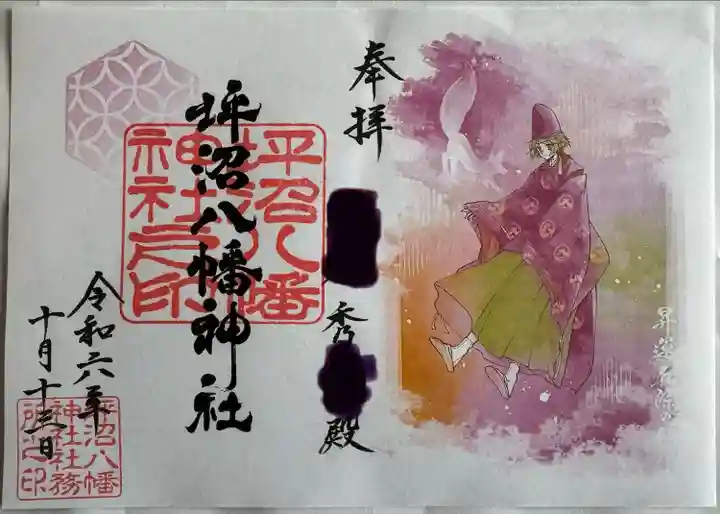 奉拝
秀
殿
坪沼八幡神社
坪沼八幡
神社之印
令和六年
十月十三日
坪沼八幡
神社社務
所之印